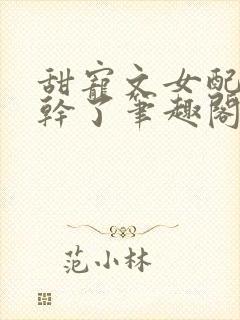 甜寵文女配
幹了筆趣閣
范小林